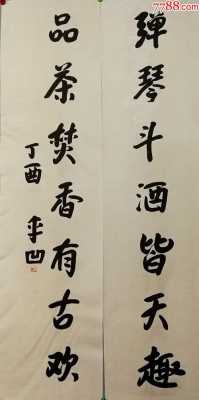 7788.com
弹琴斗酒皆天趣
品茶焚香有古欢
丁酉
平凹